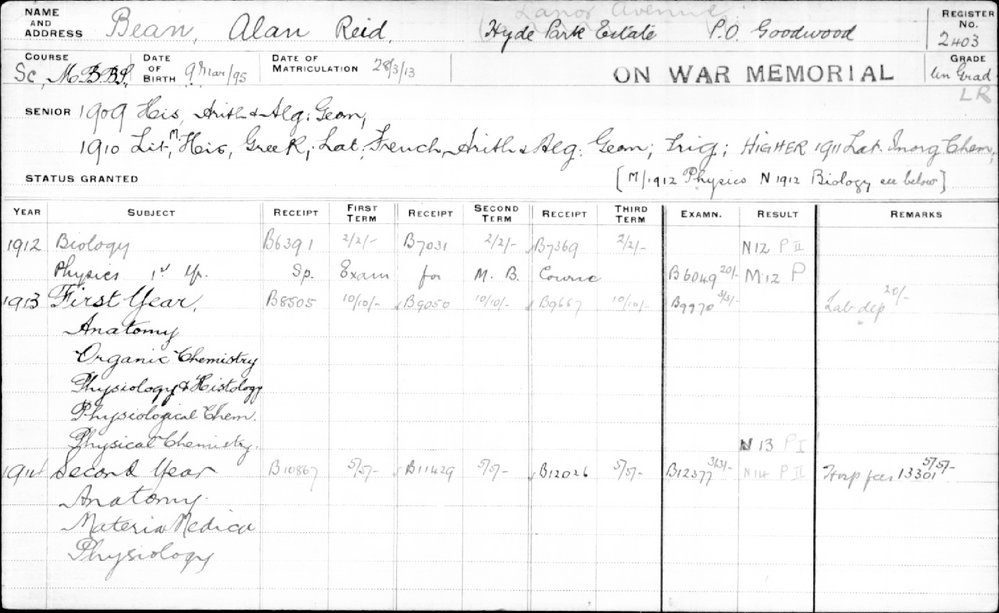 Lanor Avenue
NAME AND ADDRESS Bean, Alan Reid, Hyde Park Estate P.O. Goodwood REGISTER No. 2403
COURSE Sc, M.B.B.S. DATE OF BIRTH 9 Mar/95 DATE OF MATRICULATION 28/3/13 ON WAR MEMORIAL GRADE Un Grad
LR
SENIOR 1909 His, Arith & Alg: Geom,
1910 Lit, His, Greek, Lat, French, Arith & Alg: Geom; Trig; HIGHER 1911 Lat. Inorg Chem,
STATUS GRANTED [M/1912 Physics N 1912 Biology see below]
YEAR SUBJECT RECEIPT FIRST TERM RECEIPT SECOND TERM RECEIPT THIRD TERM EXAMN. RESULT REMARKS
1912 Biology B6391 2/2/- B7031 2/2/- B7369 2/2/- N12 P II
Physics 1st Sp. Exam for M.B. Course B6049 20/- M'12 P
1913 First Year, B8505 10/10/- B9050 10/10/- B9667 10/10/- B9970 3/3/- Lab dep 20/-
Anatomy
Organic Chemistry
Physiology & Histology
Physiological Chem.
Physical Chemistry. N 13 P I
1914 Second Year B10867 5/5/- B11429 5/5/- B12026 5/5/- B12377 3/3/- N14 P II Hosp fees 13301 5/5/-
Anatomy.
Materia Medica
Physiology